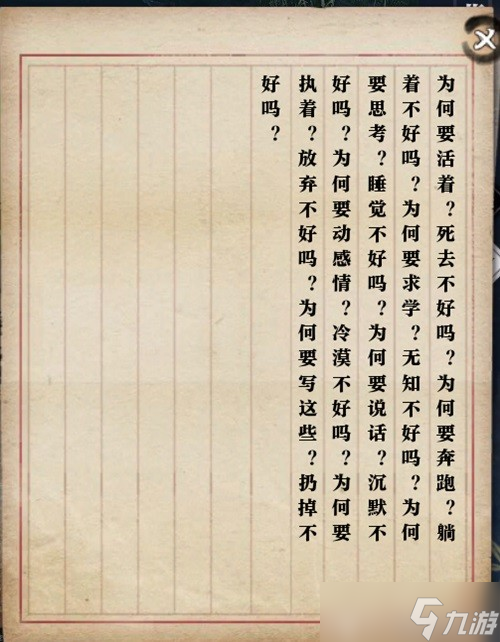 为何要活着？死去不好吗？为何要奔跑？躺
着不好吗？为何要求学？无知不好吗？为何
要思考？睡觉不好吗？为何要说话？沉默不
好吗？为何要动感情？冷漠不好吗？为何要
执着？放弃不好吗？为何要写这些？扔掉不
好吗？
九游